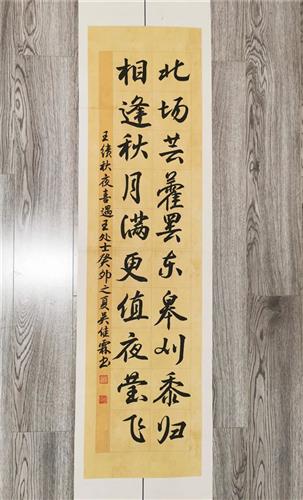 北场芸藿罢东皋刈黍归
相逢秋月满更值夜萤飞
王绩秋夜喜遇王处士癸卯之夏吴佳霖书